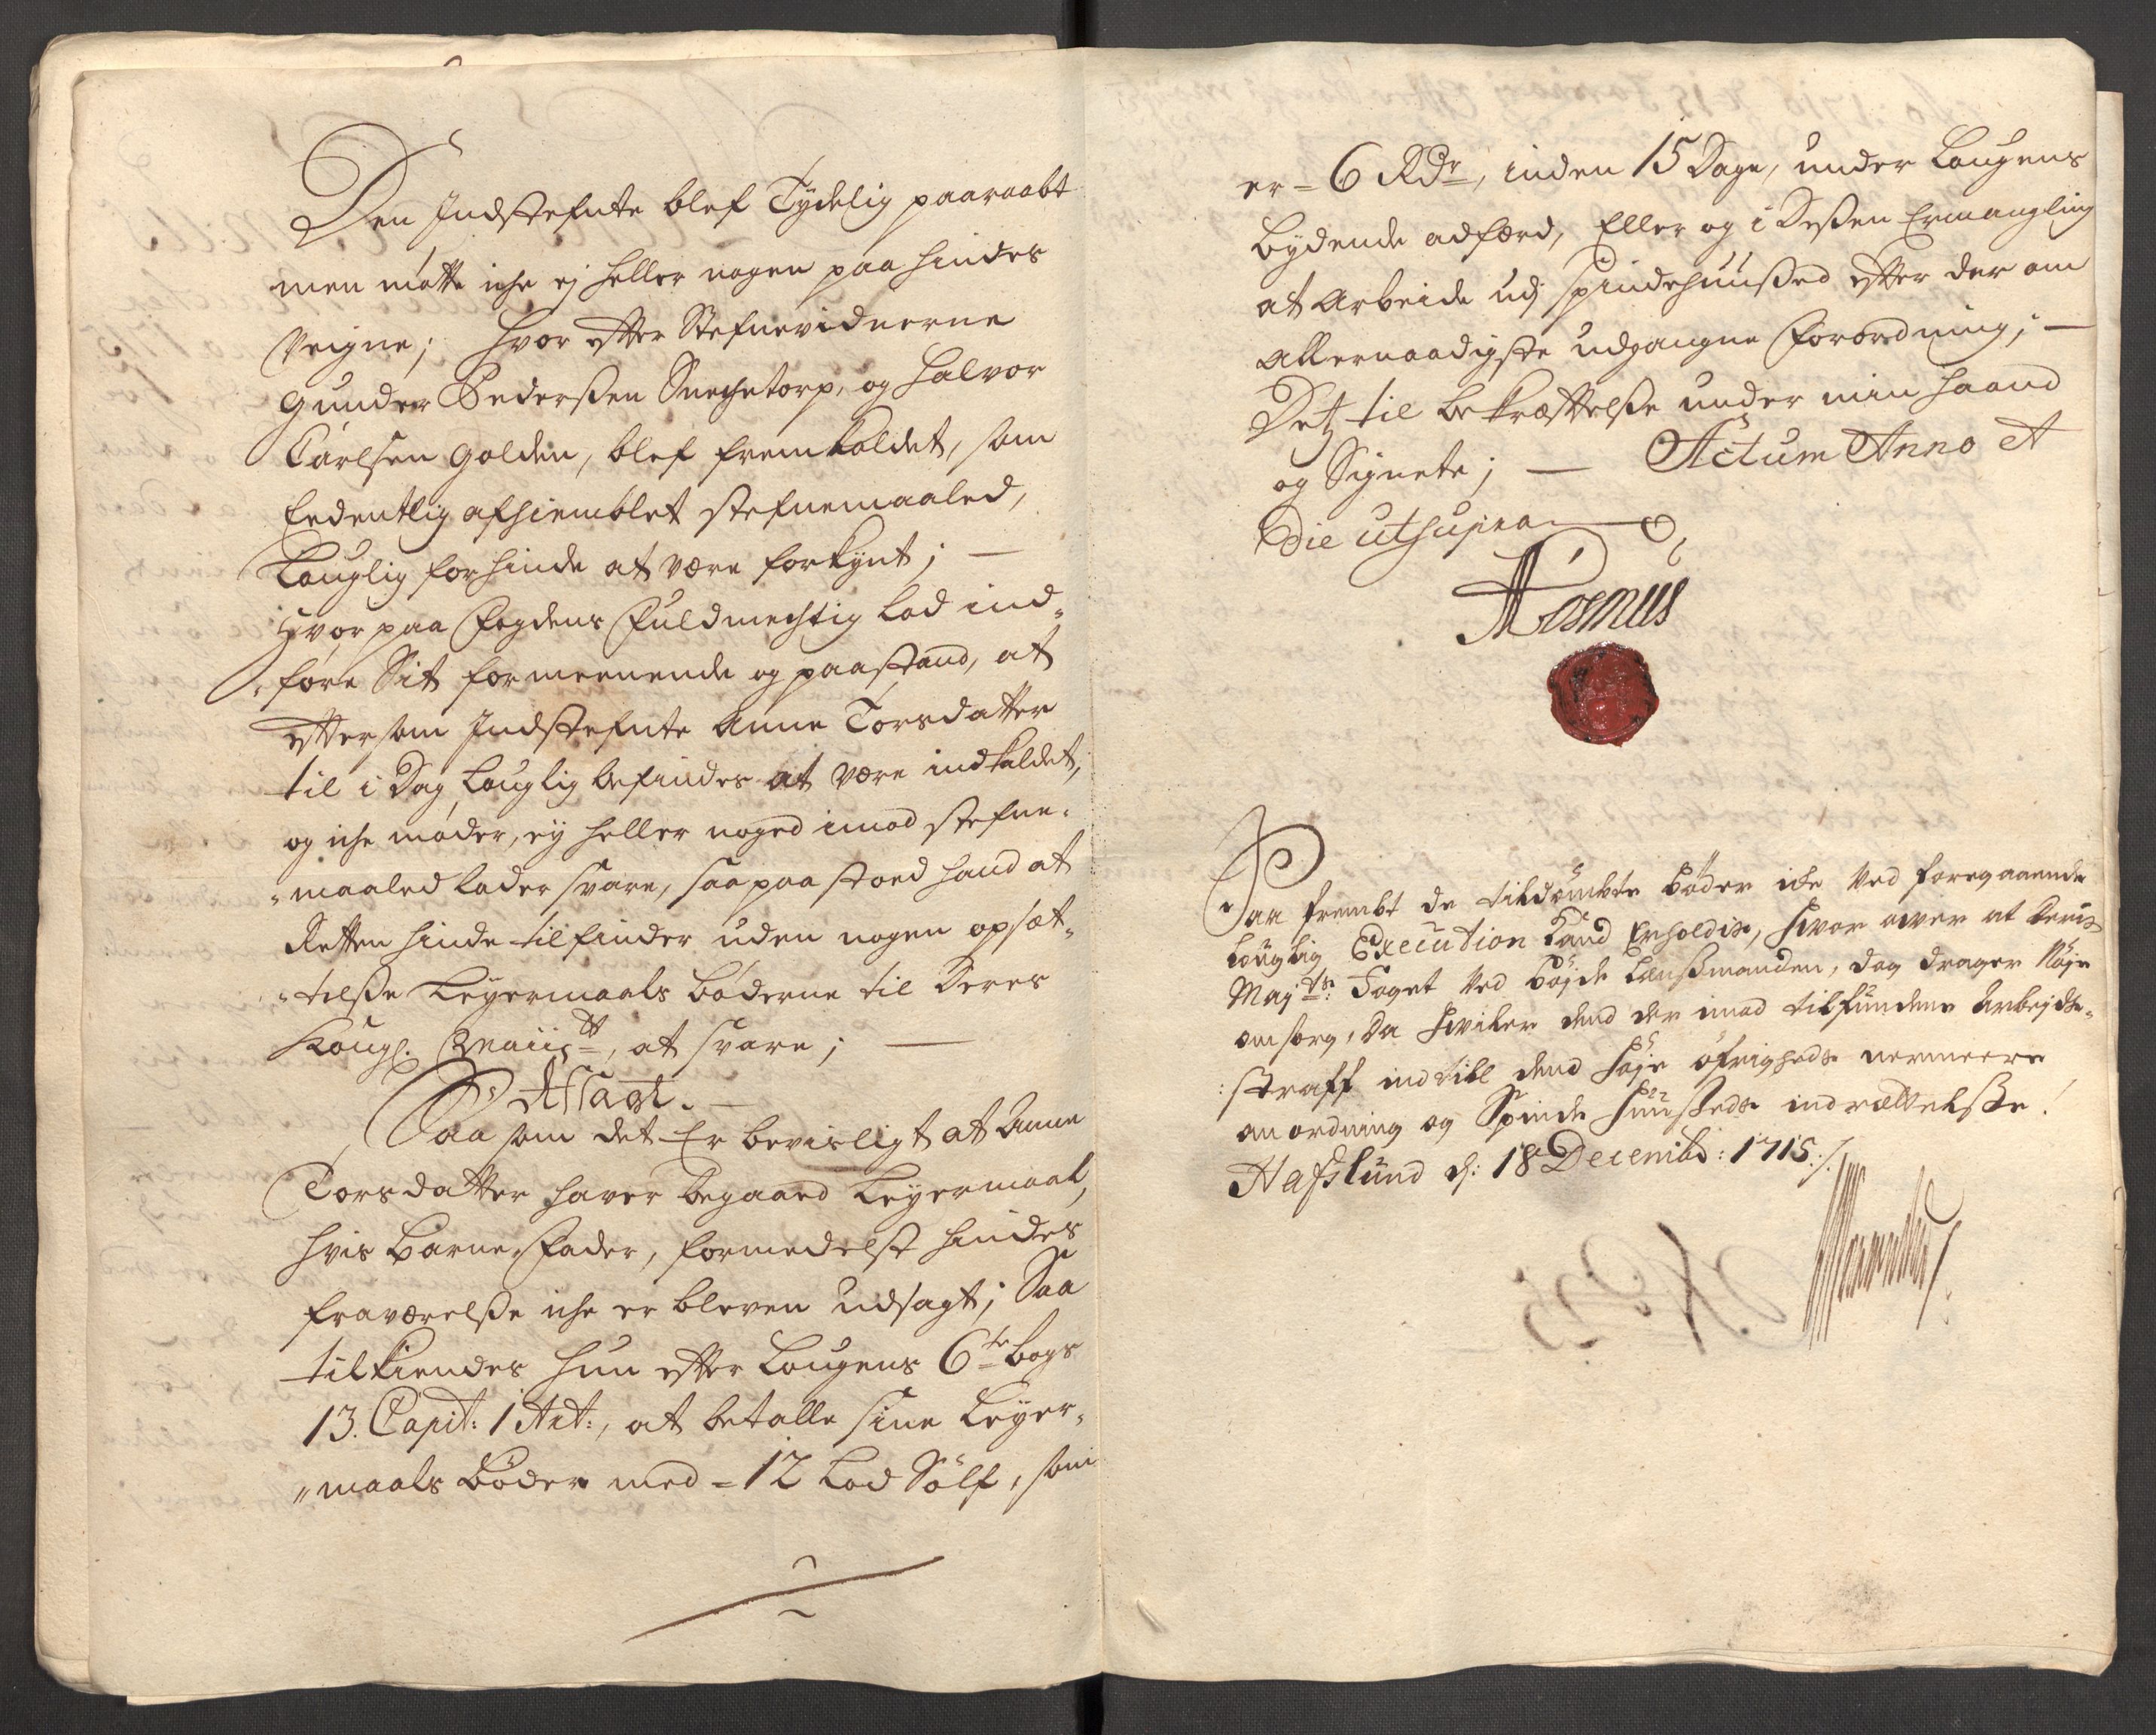 Den Indstefnte blef Tydelig paaraabt
men møtte iche ej heller nogen paa hindes
Veigne; hvor effter Stefnevidnerne
Gunder Pederßen Snechetorp, og Halvor
Carlsen Golden, blef fremkaldet, som
Eedentlig afhiemblet stefnemaaled,
Louglig for hinde at være forkynt; —
Hvor paa Fogdens Fuldmechtig lod ind-
føre Sit formeenende og paastand, at
effter som Indstefnte Anne Torsdatter
til i Dag Louglig befindes at være indkaldet,
og iche møder, ey heller noged imod stefne-
maaled lader svare, saa paastoed hand at
Retten hinde tilfinder uden nogen opsæt-
telße Leyermaals bøderne til Deres
Kongl. Maiistt, at svare; —
Afsagt. —
Saa som det Er bevisligt at Anne
Torsdatter haver begaaed Leyermaal,
hvis Barne Fader, formedelst hindes
fraværelße iche er bleven udsagt; Saa
tilkiendes hun effter Lougens 6te bogs
13. Capit: 1 Art:, at betalle sine Leyer-
maals bøder med = 12 Lod Sölf, som
er = 6 Rdr, inden 15 Dage, under Lougens
bydende adfærd, Eller og i Deßen Ermangling
at Arbeide udj Spindehuußed effter der om
allernaadigste udgangne Forordning; —
Detz til bekræfftelße under min haand
og Signete; — Actum Anno Et
Die utsupra
NRosnus
Saa frembt de tildömbte böder icke ved foregaaende
Louglig Execution kand Erholdis, hvor over at Deris
Majts: Foget ved böjde Lensmanden, dog drager Nöje
omsorg, da hviler dend der imod tilfundene Arbejds-
straff indtill dend höje öfrigheds nermeere
anordning og Spinde huußeds indrættelße!
Hafslund d: 18 Decembr: 1715 :/